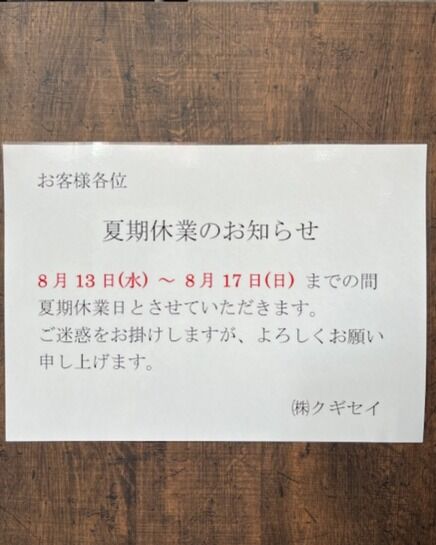 お客様各位
夏期休業のお知らせ
8月13日(水) ～ 8月17日(日) までの間
夏期休業日とさせていただきます。
ご迷惑をお掛けしますが、よろしくお願い
申し上げます。
㈱クギセイ